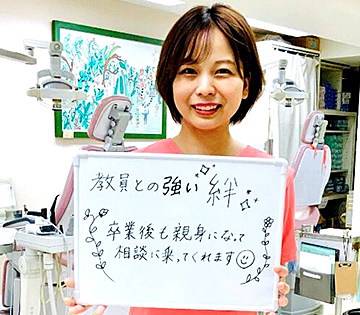 教員との強い絆
卒業後も親身になって
相談に乗ってくれます